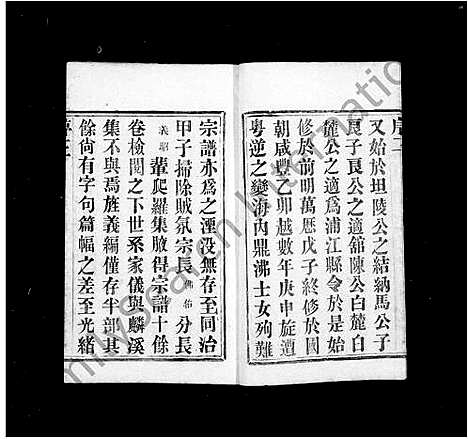 又始於坦陵公之結納馬公子
良子良公之適舘陳公白麓白
麓公之適為浦江縣令於是始
修於前明萬歴戊子終修於國
朝咸豐乙卯越數年庚申旋遭
粵逆之變海内鼎沸士女殉難
宗譜亦為之湮没無存至同治
甲子掃除賊氛宗長 分長
義昭輩爬羅集腋得宗譜十餘
卷檢閱之下世系家儀與麟溪
集不與焉旌義編僅存半部其
餘尚有字句篇幅之差至光緒